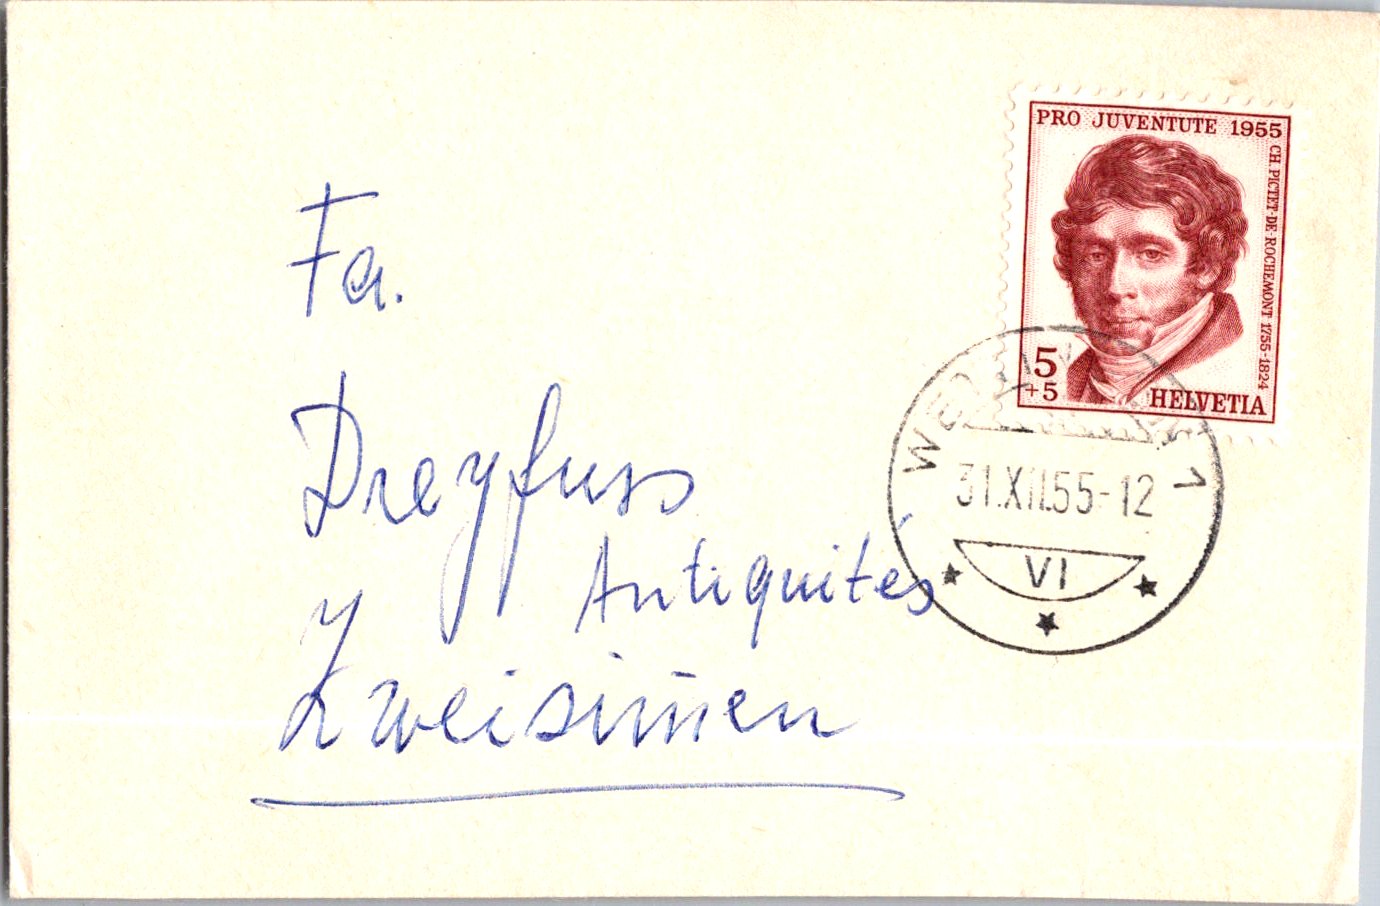 PRO JUVENTUTE 1955
CH. PICTET-DE-ROCHEMONT 1755-1824
5
+5
HELVETIA
31.XII.55-12
VI
1
Fa.
Dreyfuss
Antiquités
Zweisimmen